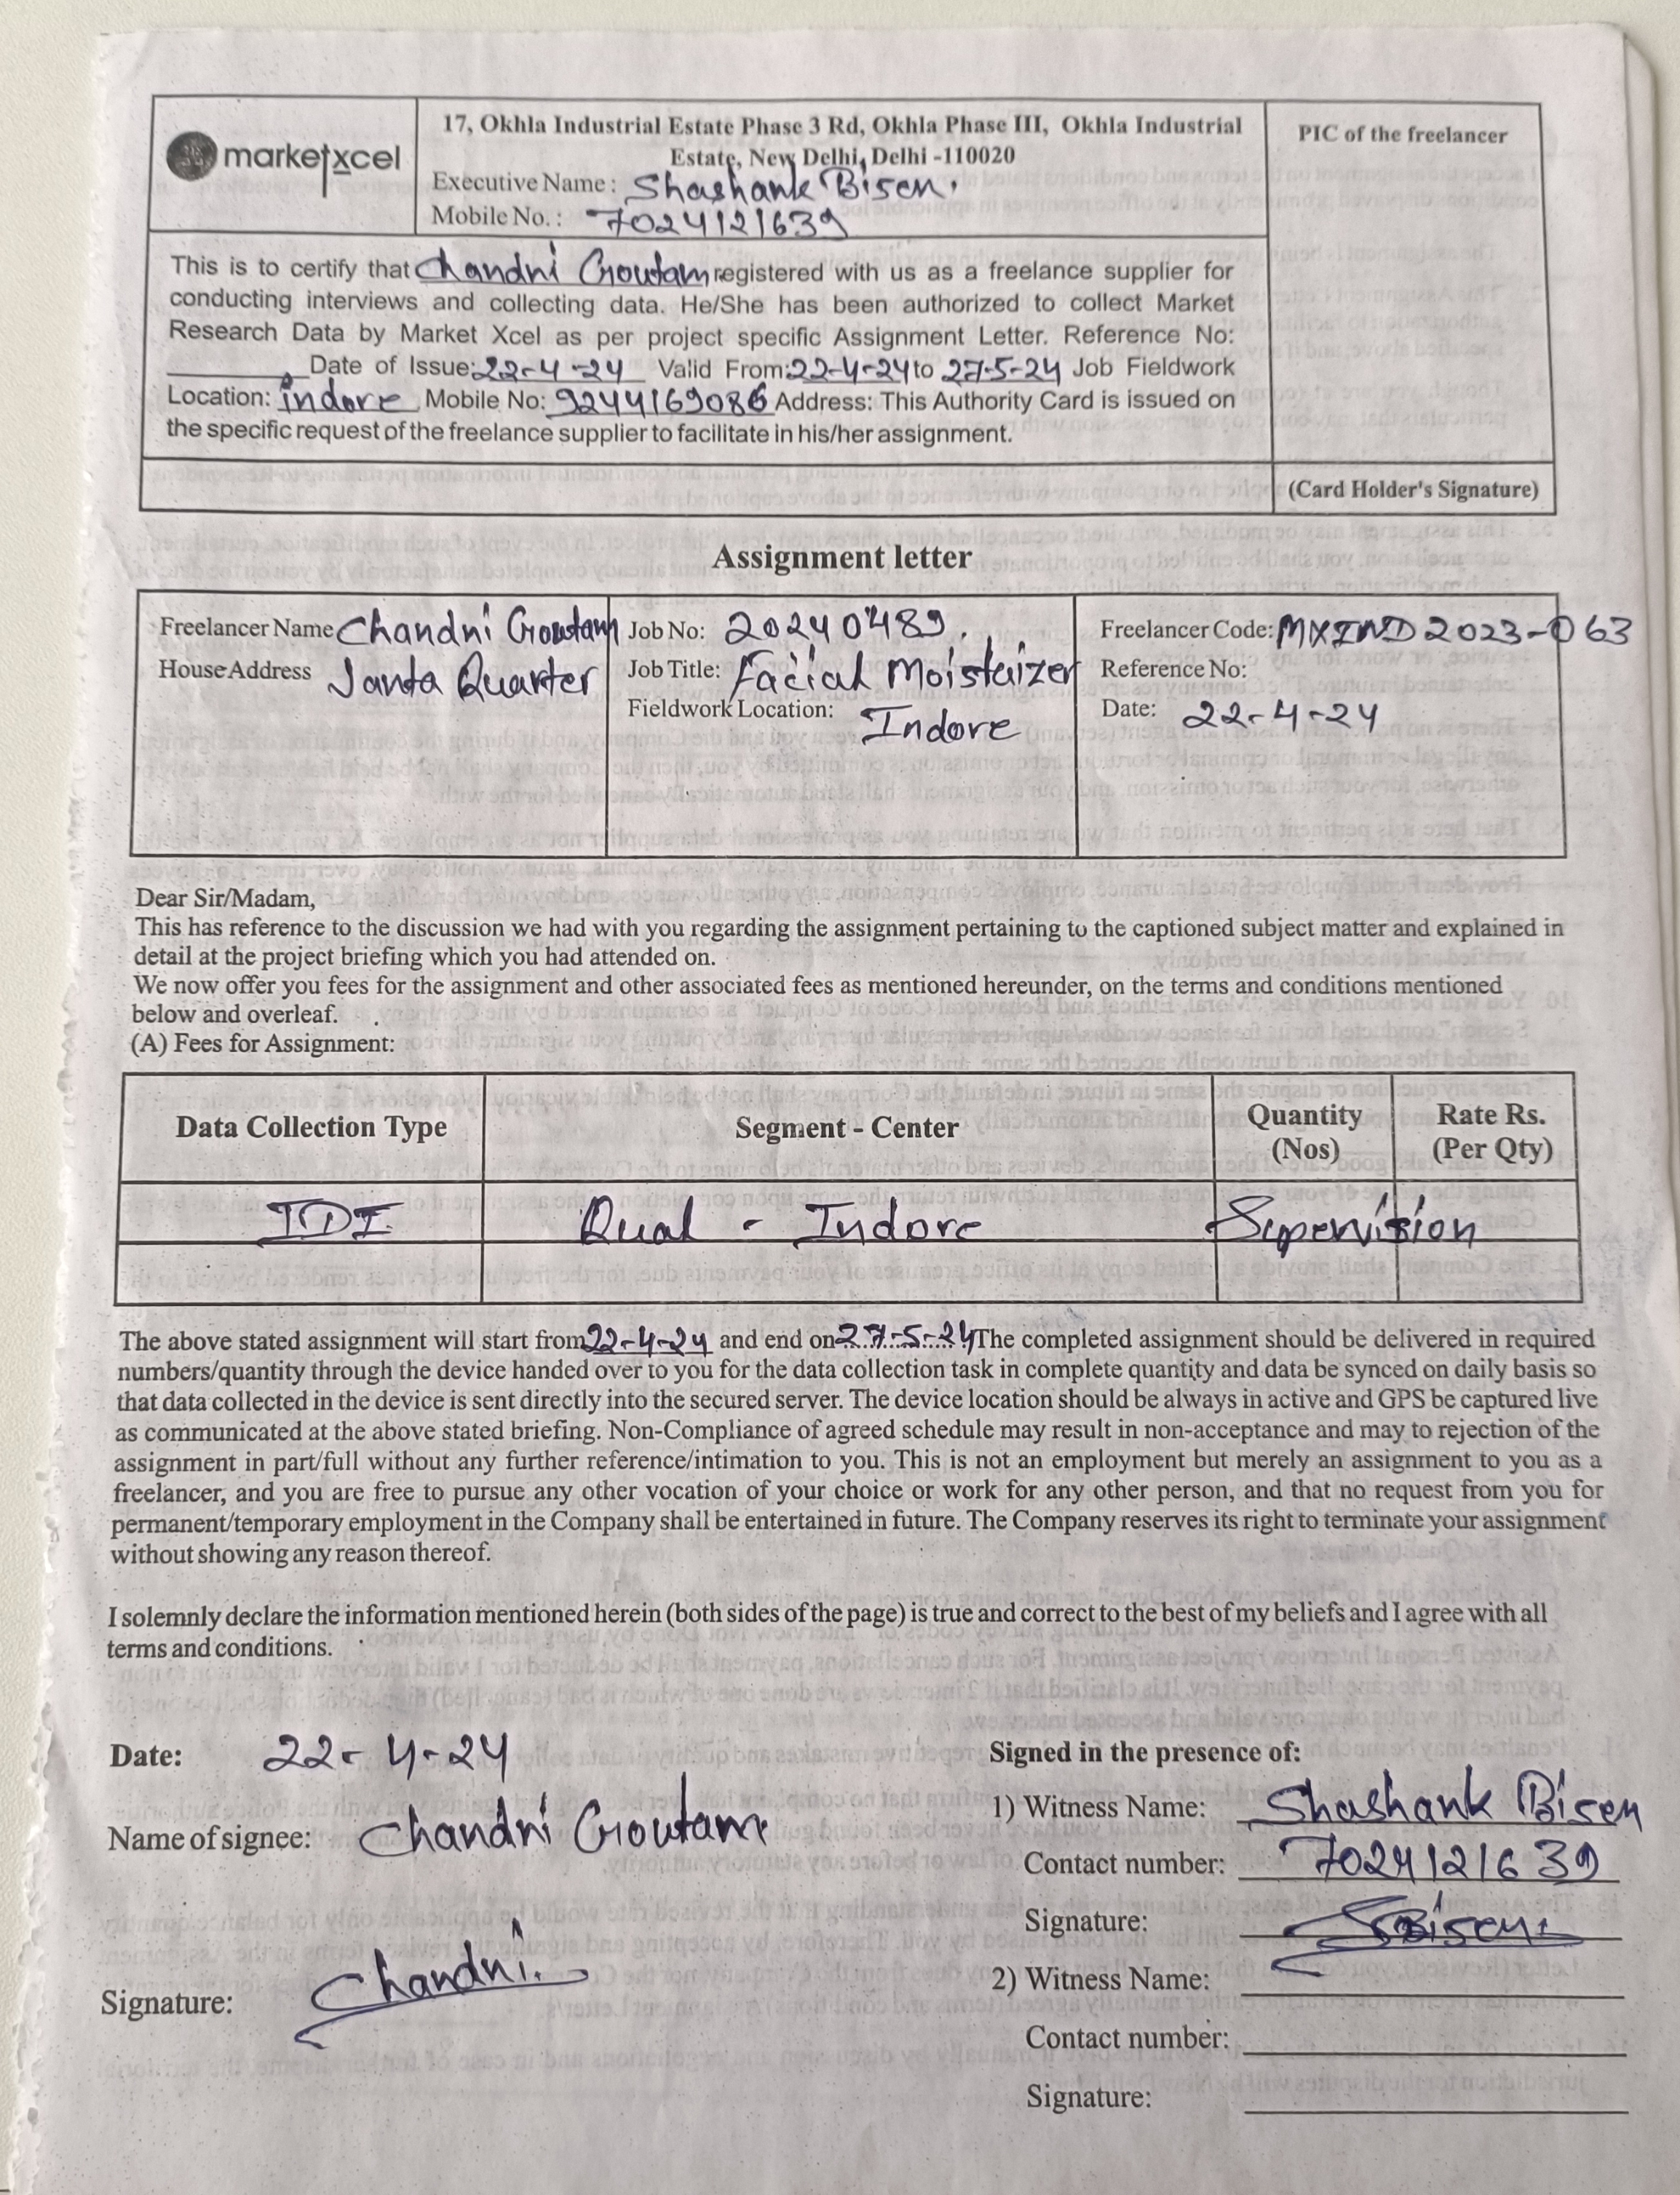 marketxcel
17, Okhla Industrial Estate Phase 3 Rd, Okhla Phase III, Okhla Industrial
Estate, New Delhi, Delhi -110020
Executive Name : Shashank Bisen.
Mobile No. : 7024121639
PIC of the freelancer
This is to certify that Chandni Groutam registered with us as a freelance supplier for
conducting interviews and collecting data. He/She has been authorized to collect Market
Research Data by Market Xcel as per project specific Assignment Letter. Reference No:
________ Date of Issue: 22-4-24 Valid From: 22-4-24 to 27-5-24 Job Fieldwork
Location: indore Mobile No: 9244169086 Address: This Authority Card is issued on
the specific request of the freelance supplier to facilitate in his/her assignment.
(Card Holder's Signature)
Assignment letter
Freelancer Name Chandni Groutam
House Address Janta Quarter
Job No: 20240489.
Job Title: Facial Moisteizer
Fieldwork Location: Indore
Freelancer Code: MXIND2023-063
Reference No:
Date: 22-4-24
Dear Sir/Madam,
This has reference to the discussion we had with you regarding the assignment pertaining to the captioned subject matter and explained in
detail at the project briefing which you had attended on.
We now offer you fees for the assignment and other associated fees as mentioned hereunder, on the terms and conditions mentioned
below and overleaf.
(A) Fees for Assignment:
Data Collection Type Segment - Center Quantity (Nos) Rate Rs. (Per Qty)
IDI Qual - Indore Supervision
The above stated assignment will start from 22-4-24 and end on 27-5-24 The completed assignment should be delivered in required
numbers/quantity through the device handed over to you for the data collection task in complete quantity and data be synced on daily basis so
that data collected in the device is sent directly into the secured server. The device location should be always in active and GPS be captured live
as communicated at the above stated briefing. Non-Compliance of agreed schedule may result in non-acceptance and may to rejection of the
assignment in part/full without any further reference/intimation to you. This is not an employment but merely an assignment to you as a
freelancer, and you are free to pursue any other vocation of your choice or work for any other person, and that no request from you for
permanent/temporary employment in the Company shall be entertained in future. The Company reserves its right to terminate your assignment
without showing any reason thereof.
I solemnly declare the information mentioned herein (both sides of the page) is true and correct to the best of my beliefs and I agree with all
terms and conditions.
Date: 22-4-24
Name of signee: Chandni Groutam
Signature: Chandni.
Signed in the presence of:
1) Witness Name: Shashank Bisen
Contact number: 7024121639
Signature: SBisen
2) Witness Name:
Contact number:
Signature: